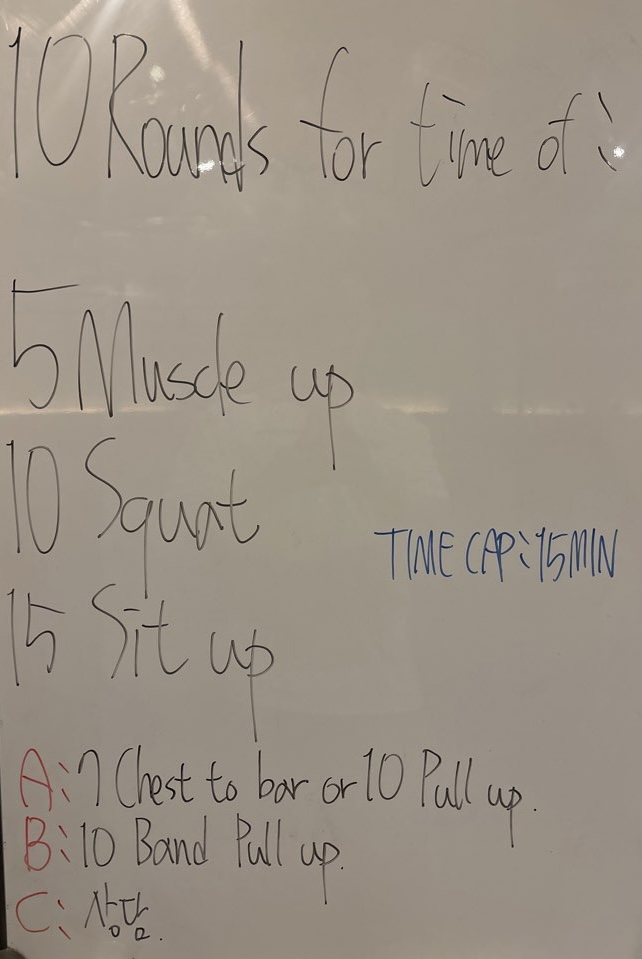 10 Rounds for time of :
5 Muscle up
10 Squat
TIME CAP : 15 MIN
15 Sit up
A: 7 Chest to bar or 10 Pull up.
B: 10 Band Pull up.
C: 상담.